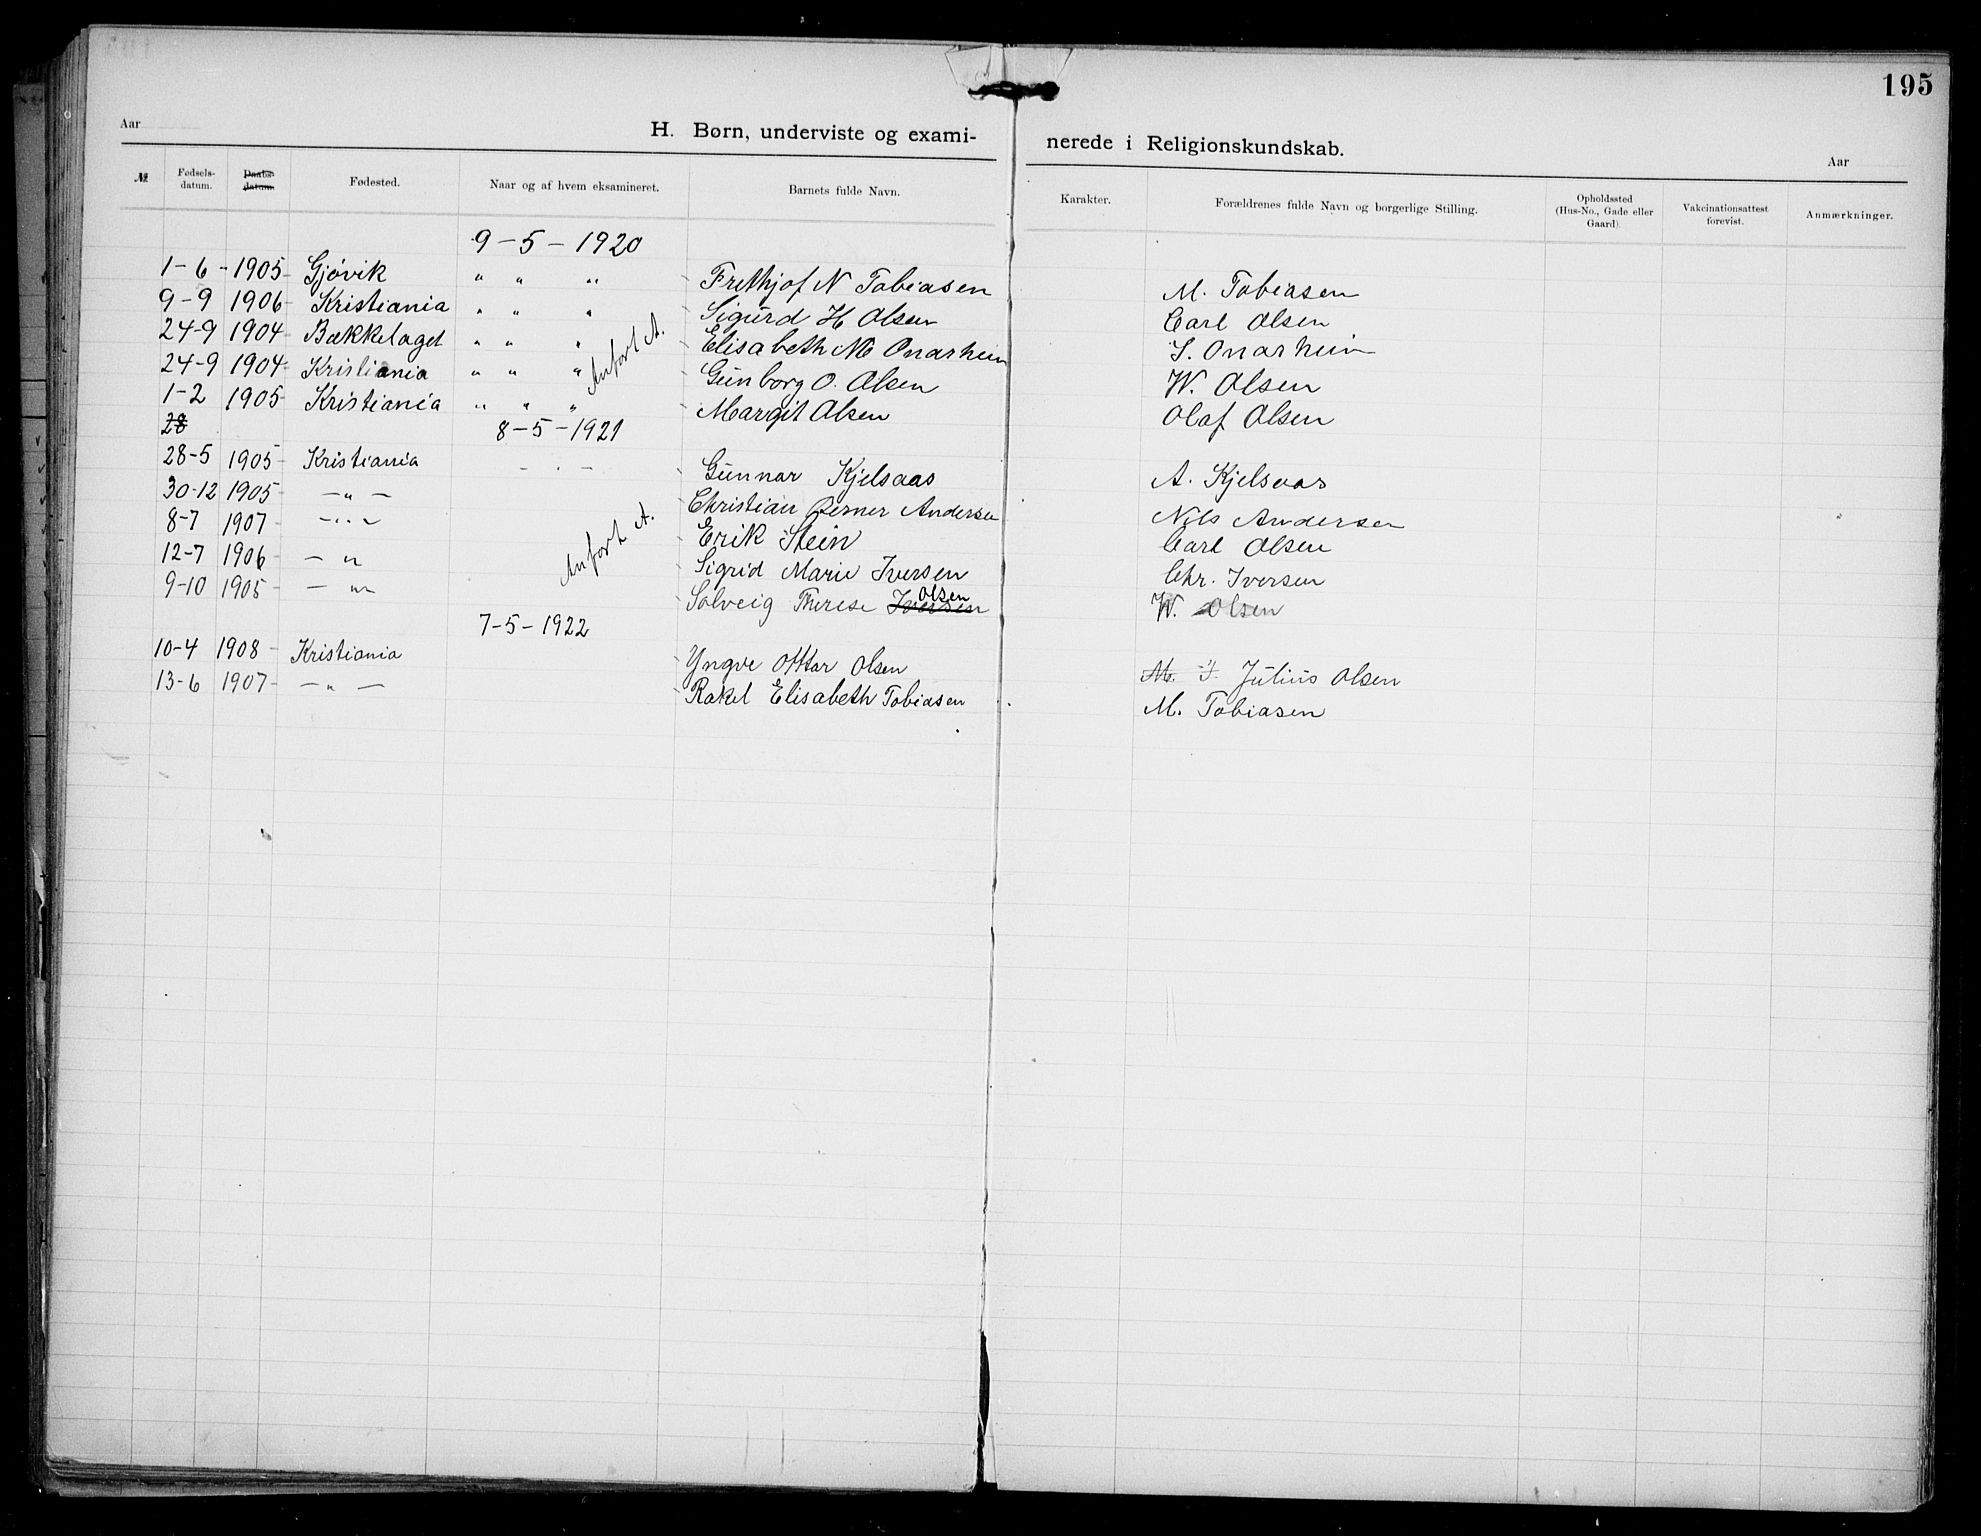 195
Aar H. Børn, underviste og exami- nerede i Religionskundskab. Aar
№ Fødsels-datum. Daabs-datum. Fødested. Naar og af hvem eksamineret. Barnets fulde Navn. Karakter. Forældrenes fulde Navn og borgerlige Stilling. Opholdssted (Hus-No., Gade eller Gaard). Vakcinationsattest forevist. Anmærkninger.
9-5-1920
1-6-1905- Gjøvik " " " Frithjof N Tobiasen M. Tobiasen
9-9 1906- Kristiania " " " Sigurd H Olsen Carl Olsen
24-9 1904- Bækkelaget " " " Elisabeth M Onarheim S. Onarheim
24-9 1904- Kristiania " " " Gunborg O. Olsen W. Olsen
Anført A.
1-2 1905- Kristiania " " " Margit Olsen Olaf Olsen
28 8-5-1921
28-5 1905- Kristiania - " - Gunnar Kjelsaas A. Kjelsaas
30-12 1905- -"- Christian Berner Andersen Nils Andersen
8-7 1907- -"- Erik Stein Carl Olsen
Anført A.
12-7 1906- - " Sigrid Marie Iversen Chr. Iversen
9-10 1905- - " Solveig Therese Iversen Olsen W. Olsen
7-5-1922
10-4 1908- Kristiania Yngve Ottar Olsen M. T. Julius Olsen
13-6 1907- -"- Rakel Elisabeth Tobiasen M. Tobiasen